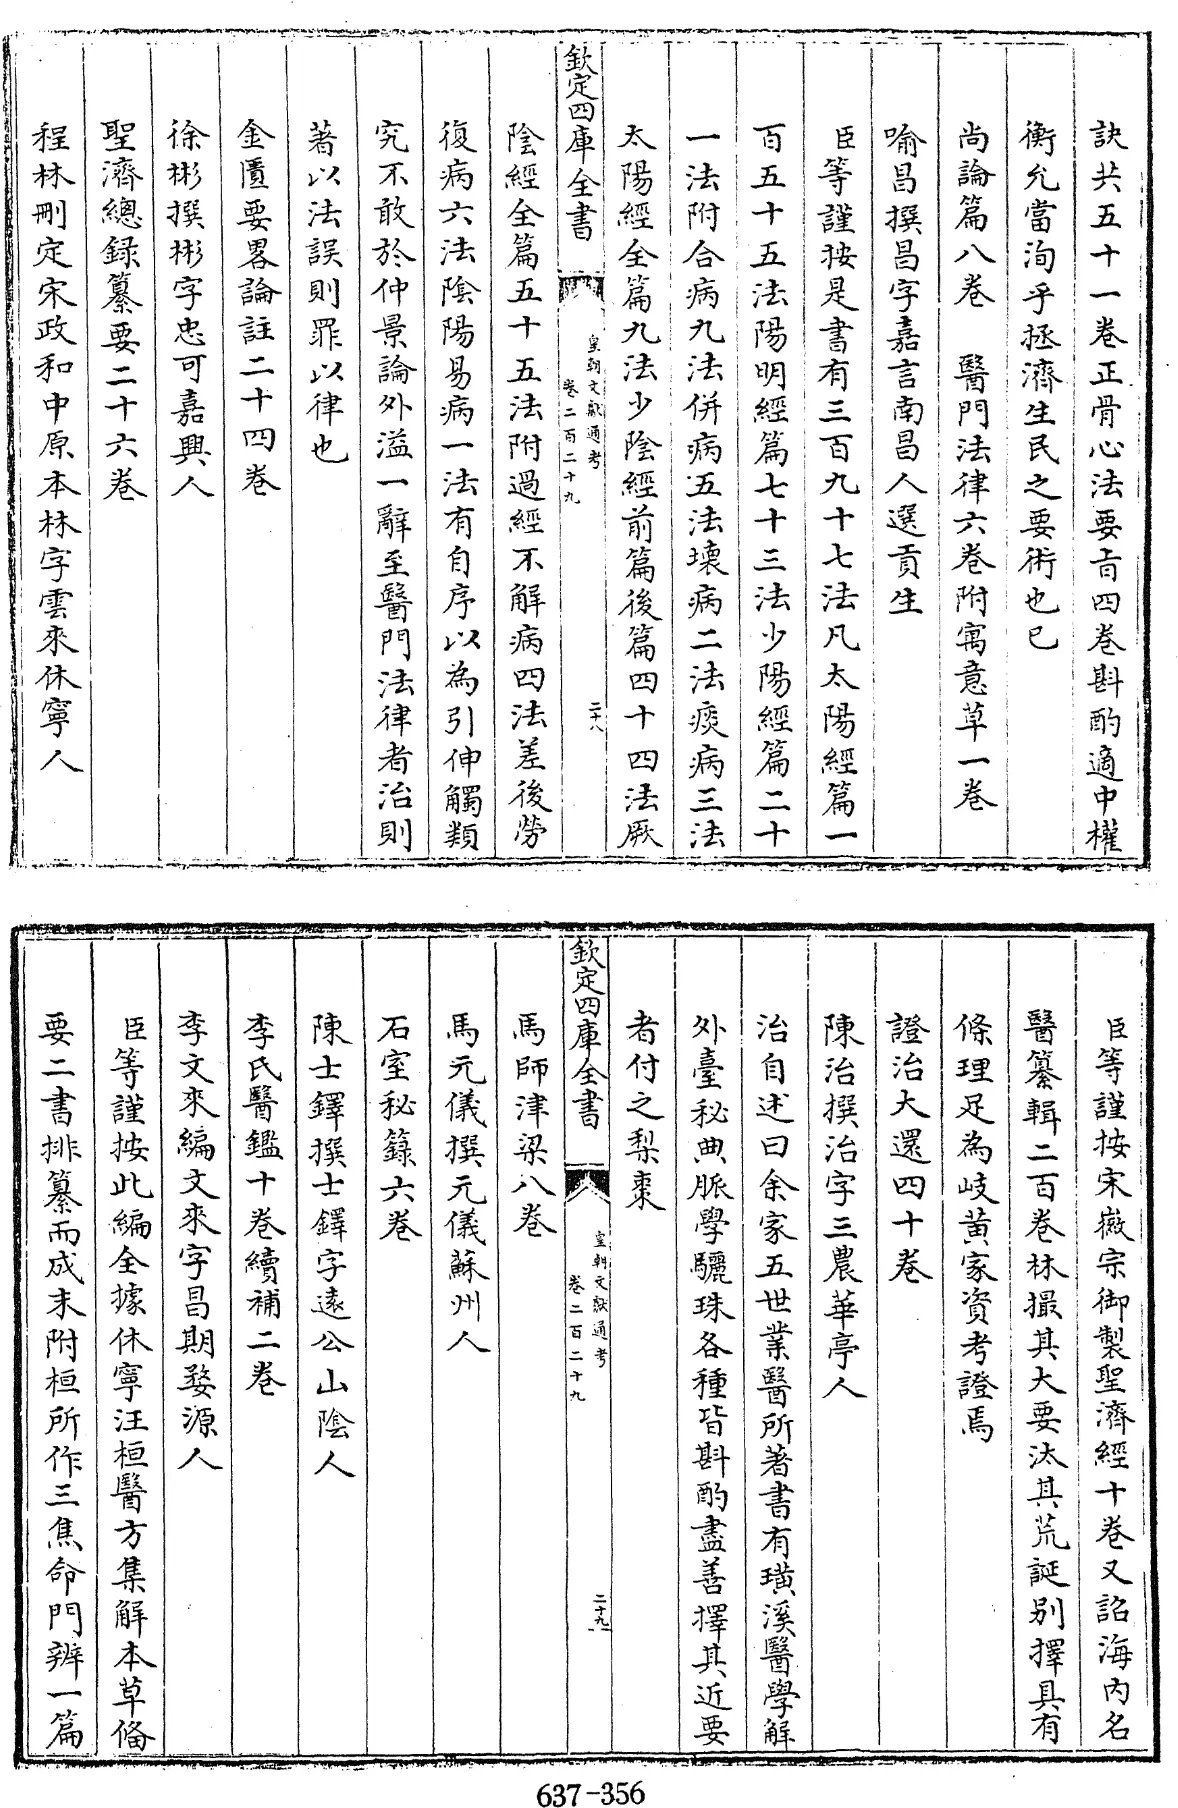 訣共五十一卷正骨心法要旨四卷斟酌適中權
衡允當洵乎拯濟生民之要術也已
尚論篇八卷　醫門法律六卷附寓意草一卷
喻昌撰昌字嘉言南昌人選貢生
臣等謹按是書有三百九十七法凡太陽經篇一
百五十五法陽明經篇七十三法少陽經篇二十
一法附合病九法併病五法壞病二法痰病三法
太陽經全篇九法少陰經前篇後篇四十四法厥
欽定四庫全書
皇朝文獻通考
卷二百二十九
二十八
陰經全篇五十五法附過經不解病四法差後勞
復病六法陰陽易病一法有自序以為引伸觸類
究不敢於仲景論外溢一辭至醫門法律者治則
著以法誤則罪以律也
金匱要畧論註二十四卷
徐彬撰彬字忠可嘉興人
聖濟總録纂要二十六卷
程林刪定宋政和中原本林字雲來休寧人
臣等謹按宋徽宗御製聖濟經十卷又詔海内名
醫纂輯二百卷林撮其大要汰其荒誕别擇具有
條理足為岐黄家資考證焉
證治大還四十卷
陳治撰治字三農華亭人
治自述曰余家五世業醫所著書有璜溪醫學解
外臺秘典脈學驪珠各種皆斟酌盡善擇其近要
者付之梨棗
欽定四庫全書
皇朝文獻通考
卷二百二十九
二十九
馬師津梁八卷
馬元儀撰元儀蘇州人
石室秘籙六卷
陳士鐸撰士鐸字遠公山陰人
李氏醫鑑十卷續補二卷
李文來編文來字昌期婺源人
臣等謹按此編全據休寧汪桓醫方集解本草備
要二書排纂而成末附桓所作三焦命門辨一篇
637-356